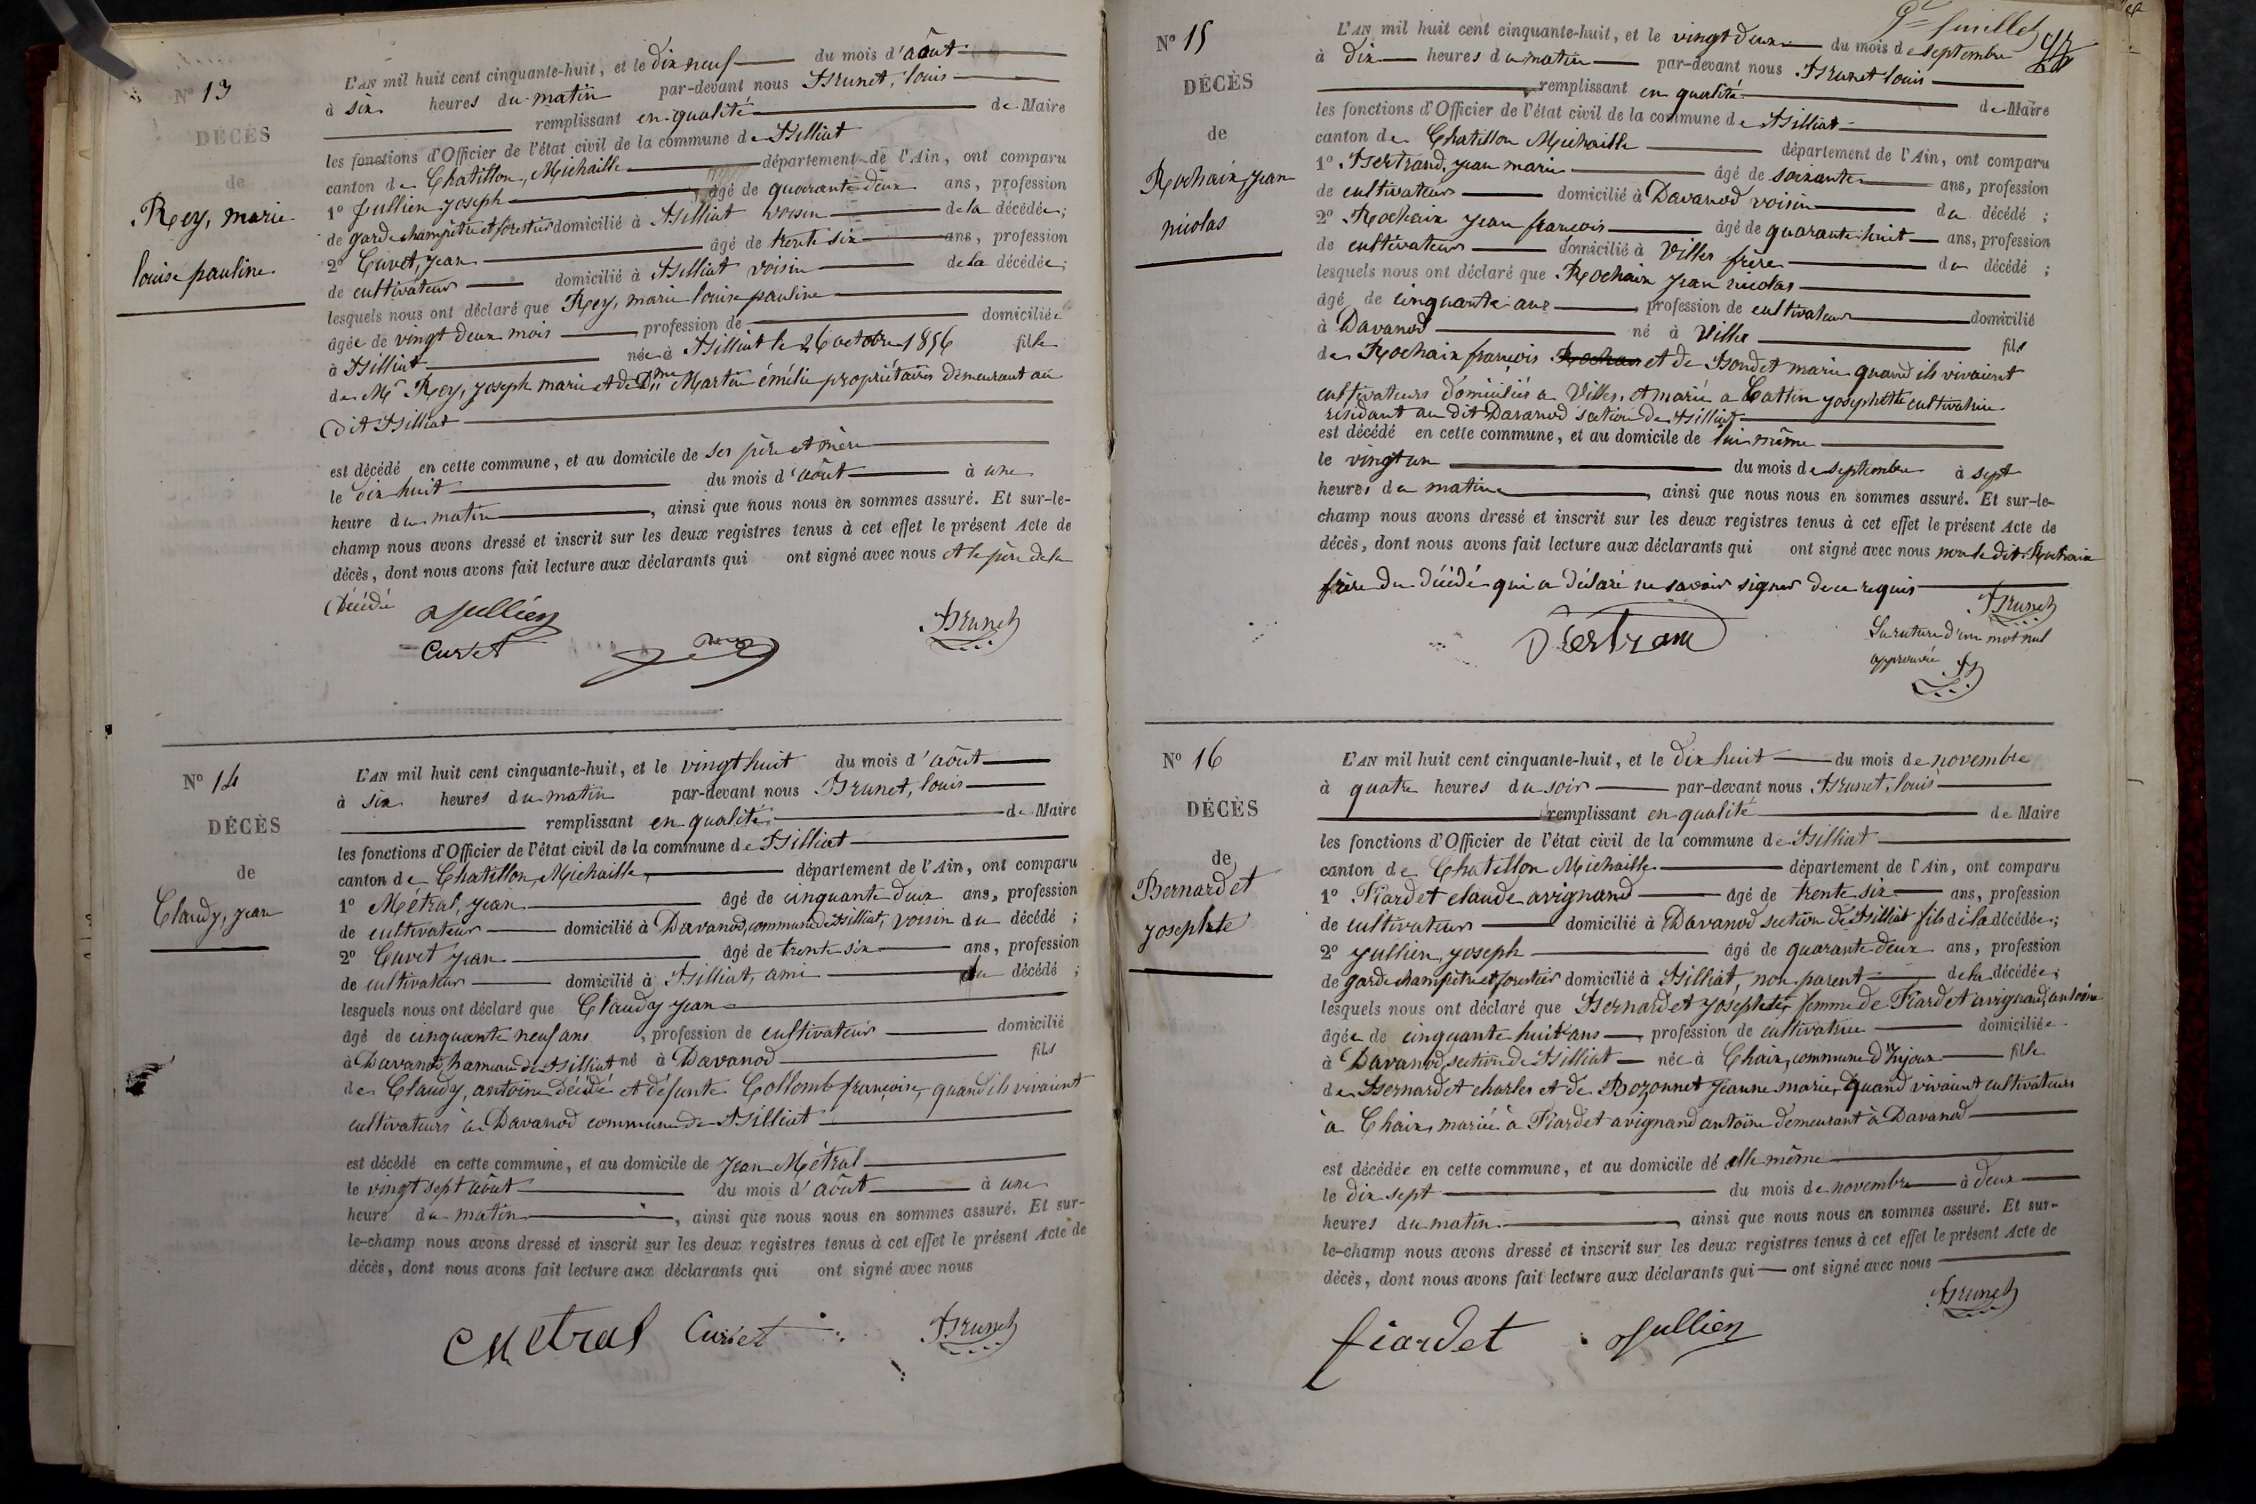 N° 13
DÉCÈS
de
Rey, marie
louise pauline
L'AN mil huit cent cinquante-huit, et le dix neuf du mois d'août
à six heures du matin par-devant nous Brunet, louis
remplissant en qualité de Maire
les fonctions d'Officier de l'état civil de la commune de Billiat
canton de Chatillon, Michaille département de l'Ain, ont comparu
1° Jullien joseph âgé de quarante deux ans, profession
de garde champêtre et forestier domicilié à Billiat voisin de la décédée;
2° Cuvet, jean âgé de trente six ans, profession
de cultivateur domicilié à Billiat voisin de la décédée;
lesquels nous ont déclaré que Rey, marie louise pauline
âgée de vingt deux mois profession de domiciliée
à Billiat née à Billiat le 26 octobre 1856 fille
de Mr Rey, joseph marie et de Dme Martin émélie propriétaires demeurant au
dit Billiat
est décédé en cette commune, et au domicile de ses père et mère
le dix huit du mois d'août à une
heure du matin, ainsi que nous nous en sommes assuré. Et sur-le-
champ nous avons dressé et inscrit sur les deux registres tenus à cet effet le présent Acte de
décès, dont nous avons fait lecture aux déclarants qui ont signé avec nous et le père de la
décédé
Jullien
Cuvet
Rey
Brunet
N° 14
DÉCÈS
de
Claudy, jean
L'AN mil huit cent cinquante-huit, et le vingt huit du mois d'août
à six heures du matin par-devant nous Brunet, louis
remplissant en qualité de Maire
les fonctions d'Officier de l'état civil de la commune de Billiat
canton de Chatillon, Michaille, département de l'Ain, ont comparu
1° Métral, jean âgé de cinquante deux ans, profession
de cultivateur domicilié à Davanod, commune de Billiat, voisin du décédé;
2° Cuvet jean âgé de trente six ans, profession
de cultivateur domicilié à Billiat, ami du décédé;
lesquels nous ont déclaré que Claudy jean
âgé de cinquante neuf ans, profession de cultivateur domicilié
à Davanod, hameau de Billiat né à Davanod fils
de Claudy, antoine décédé et défunte Collomb françoise, quand ils vivaient
cultivateurs à Davanod commune de Billiat
est décédé en cette commune, et au domicile de jean Métral
le vingt sept août du mois d'août à une
heure du matin, ainsi que nous nous en sommes assuré. Et sur-
le-champ nous avons dressé et inscrit sur les deux registres tenus à cet effet le présent Acte de
décès, dont nous avons fait lecture aux déclarants qui ont signé avec nous
Metral Cuvet
Brunet
feuillet
N° 15
DÉCÈS
de
Rochaix, jean
nicolas
L'AN mil huit cent cinquante-huit, et le vingt deux du mois de septembre
à dix heures du matin par-devant nous Brunet louis
remplissant en qualité de Maire
les fonctions d'Officier de l'état civil de la commune de Billiat
canton de Chatillon Michaille département de l'Ain, ont comparu
1° Bertrand, jean marie âgé de soixante ans, profession
de cultivateur domicilié à Davanod voisin du décédé;
2° Rochaix jean françois âgé de quarante huit ans, profession
de cultivateur domicilié à Villes frère du décédé;
lesquels nous ont déclaré que Rochaix jean nicolas
âgé de cinquante ans profession de cultivateur domicilié
à Davanod né à Villes fils
de Rochaix françois Rochaix et de Bondet marie quand ils vivaient
cultivateurs domiciliés à Villes, et marié à Cattin josephte cultivatrice
résidant au dit Davanod section de Billiat
est décédé en cette commune, et au domicile de lui même
le vingt un du mois de septembre à sept
heures du matin, ainsi que nous nous en sommes assuré. Et sur-le-
champ nous avons dressé et inscrit sur les deux registres tenus à cet effet le présent Acte de
décès, dont nous avons fait lecture aux déclarants qui ont signé avec nous non le dit Rochaix
frère du décédé qui a déclaré ne savoir signer de ce requis
Bertrand
Brunet
La rature d'un mot nul
approuvée
N° 16
DÉCÈS
de
Bernardet
josephte
L'AN mil huit cent cinquante-huit, et le dix huit du mois de novembre
à quatre heures du soir par-devant nous Brunet, louis
remplissant en qualité de Maire
les fonctions d'Officier de l'état civil de la commune de Billiat
canton de Chatillon Michaille département de l'Ain, ont comparu
1° Fiardet claude avignand âgé de trente six ans, profession
de cultivateur domicilié à Davanod section de Billiat fils de la décédée;
2° Jullien, joseph âgé de quarante deux ans, profession
de garde champêtre et forestier domicilié à Billiat, non parent de la décédée;
lesquels nous ont déclaré que Bernardet josephte, femme de Fiardet avignand, antoine
âgée de cinquante huit ans, profession de cultivatrice domiciliée
à Davanod, section de Billiat née à Chaix, commune d'Injoux fille
de Bernardet charles et de Bozonnet jeanne marie, quand vivaient cultivateurs
à Chaix, mariée à Fiardet avignand antoine demeurant à Davanod
est décédée en cette commune, et au domicile de elle même
le dix sept du mois de novembre à deux
heures du matin, ainsi que nous nous en sommes assuré. Et sur-
le-champ nous avons dressé et inscrit sur les deux registres tenus à cet effet le présent Acte de
décès, dont nous avons fait lecture aux déclarants qui ont signé avec nous
fiardet Jullien
Brunet